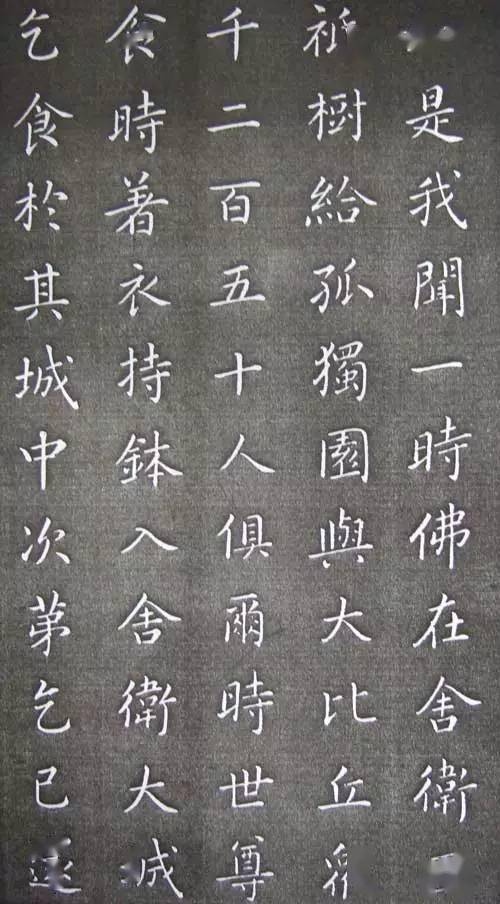 是我聞一時佛在舍衛
祇樹給孤獨園與大比丘
千二百五十人俱爾時世尊
食時著衣持鉢入舍衛大城
乞食於其城中次苐乞已